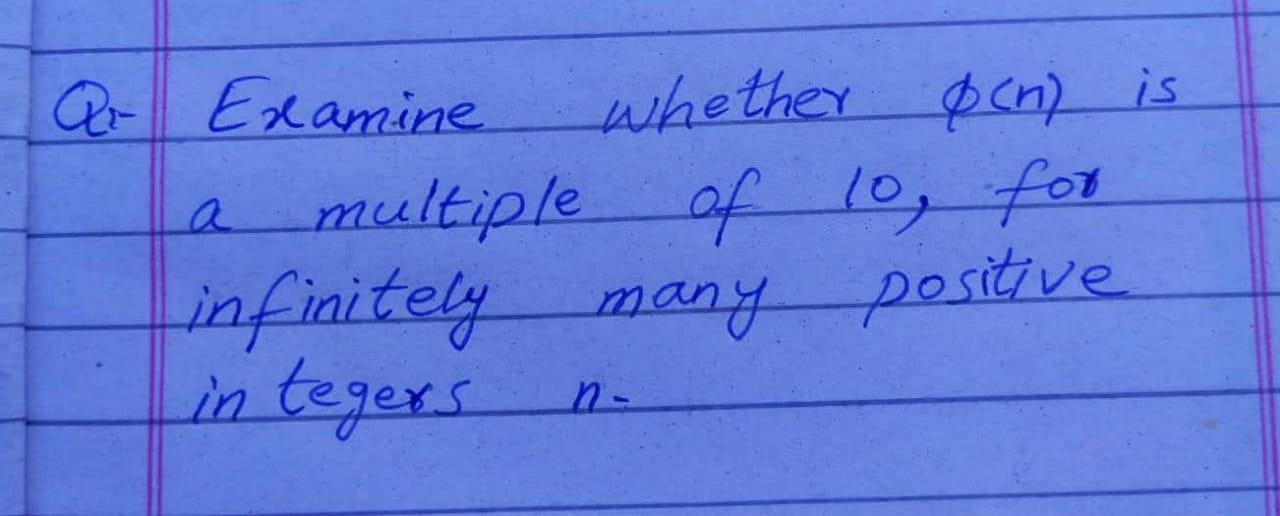 Q:- Examine whether φ(n) is
a multiple of 10, for
infinitely many positive
integers n.